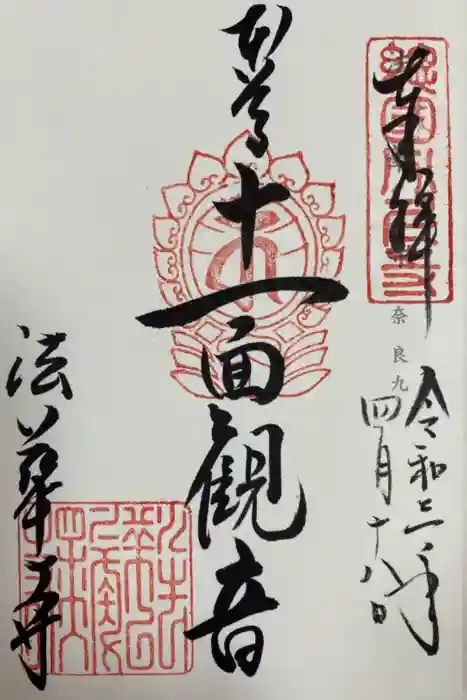 奉拝
奈良九
令和三年
四月十八日
本尊
十一面観音
法華寺